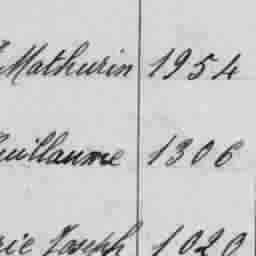 Mathurin 1954
Guillaume 1306
rie Joseph 1020